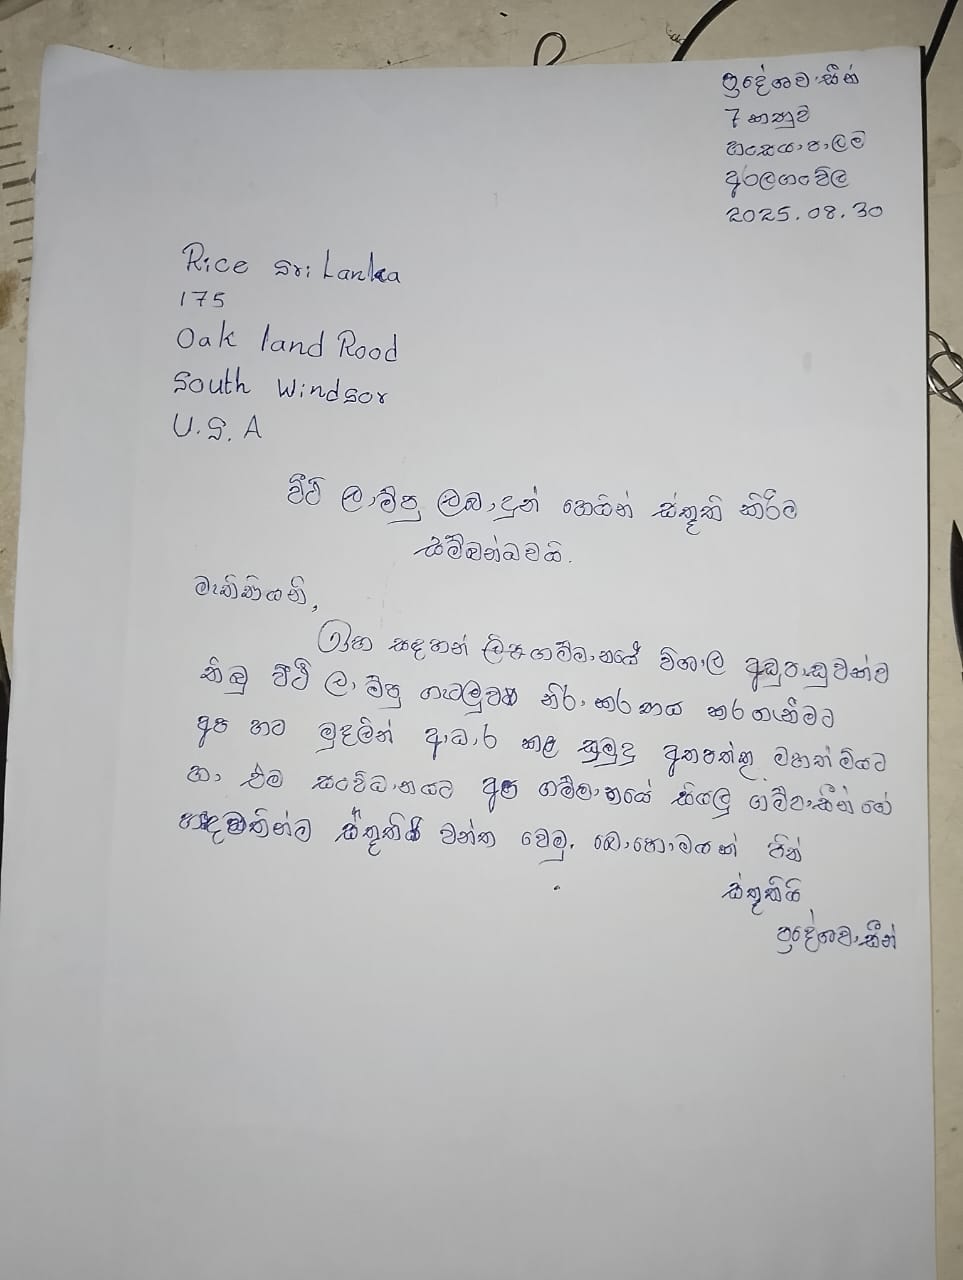 ප්‍රදේශවාසීන්
7 කණුව
හංසයාපාලම
අරලගංවිල
2025.08.30
Rice Sri Lanka
175
Oak land Rood
South Windsor
U.S.A
වීථි ලාම්පු ලබාදුන් හෙයින් ස්තූති කිරීම
සම්බන්ධවයි.
මැතිණියනි,
ඉහ සඳහන් ලිපි ගම්මානයේ විශාල අඩුපාඩුවක්ව
තිබූ වීථි ලාම්පු ගැටලුව නිරාකරනය කර ගැනීමට
අප හට මුදලින් ආධාර කළ සුමුදු අතපත්තු මහත්මියට
හා එම සංවිධානයට අප ගම්මානයේ සියලු ගම්වාසීන් ගේ
හදවතින්ම ස්තූති වන්ත වෙමු. බොහොමයක් පින්
ස්තූතියි
ප්‍රදේශවාසීන්